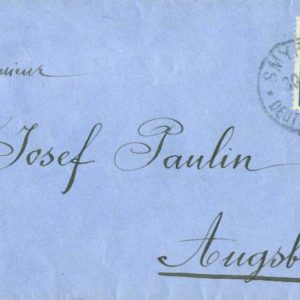 nsieur
Josef Paulin
Augsb
SMYR
DEUT